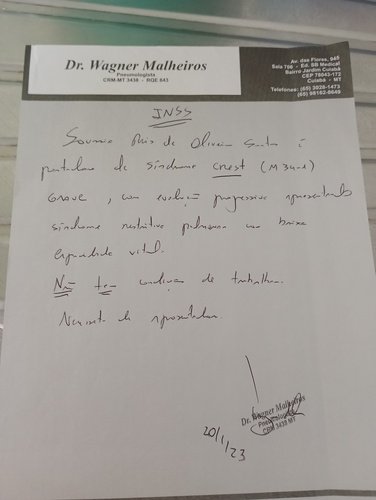 Dr. Wagner Malheiros
Pneumologista
CRM-MT 3438 - RQE 643
Av. das Flores, 945
Sala 706 - Ed. SB Medical
Bairro Jardim Cuiabá
CEP 78043-172
Cuiabá - MT
Telefones: (65) 3028-1473
(65) 98162-8649
INSS
de Oliveira Santos é
portadora de síndrome CREST (M34.1)
grave, com evolução progressiva apresentando
síndrome restritiva pulmonar com baixa
capacidade vital.
Não tem condições de trabalhar.
Necessita de aposentadoria.
Dr. Wagner Malheiros
Pneumologista
CRM 3438 MT
20/1/23